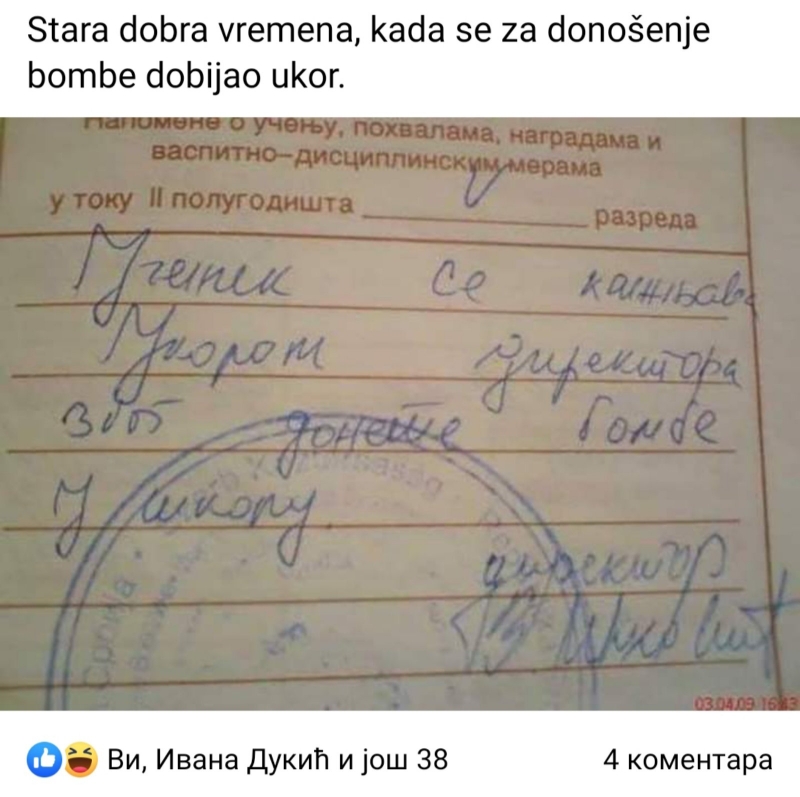 Stara dobra vremena, kada se za donošenje
bombe dobijao ukor.
Напомене о учењу, похвалама, наградама и
васпитно-дисциплинским мерама
у току II полугодишта ____________ разреда
Ученик се кажњава
Укором директора
због донете бомбе
У школу.
директор
Србија
03.04.09 16:43
Ви, Ивана Дукић и још 38
4 коментара